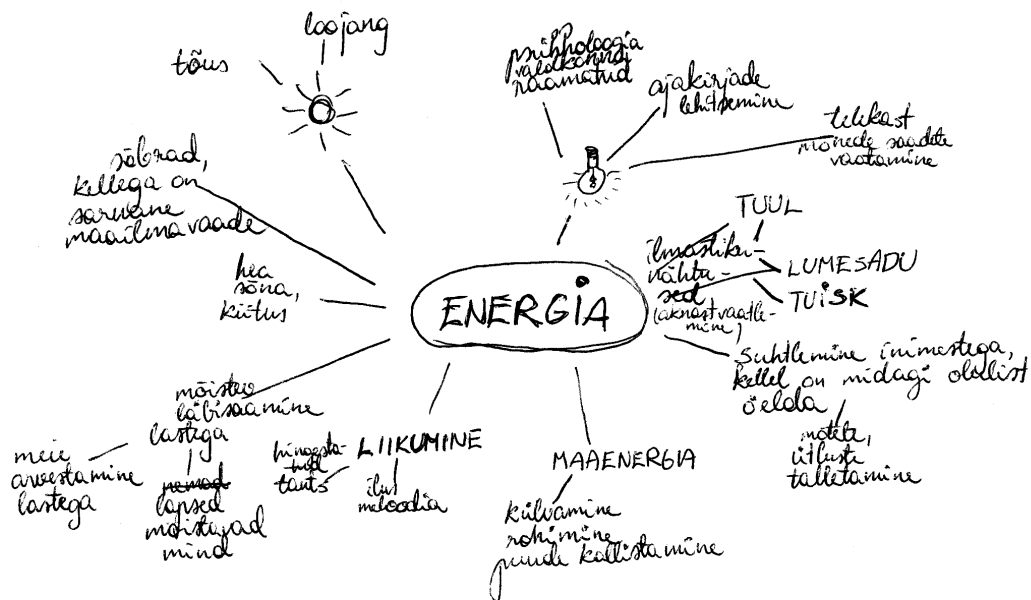 loojang
tõus
psühholoogia
valdkonna
raamatud
ajakirjade
lehitsemine
telekast
mõnede saadete
vaatamine
sõbrad,
kellega on
sarnane
maailmavaade
hea
sõna,
kiitus
ENERGIA
ilmastiku-
nähtu-
sed
(aknast vaatle-
mine)
TUUL
LUMESADU
TUISK
Suhtlemine inimestega,
kellel on midagi olulist
öelda
mõtete,
ütluste
talletamine
mõistev
läbisaamine
lastega
meie
arvestamine
lastega
nemad
lapsed
mõistavad
mind
LIIKUMINE
hingesta-
tud
tants
ilus
meloodia
MAAENERGIA
külvamine
rohimine
puude kallistamine